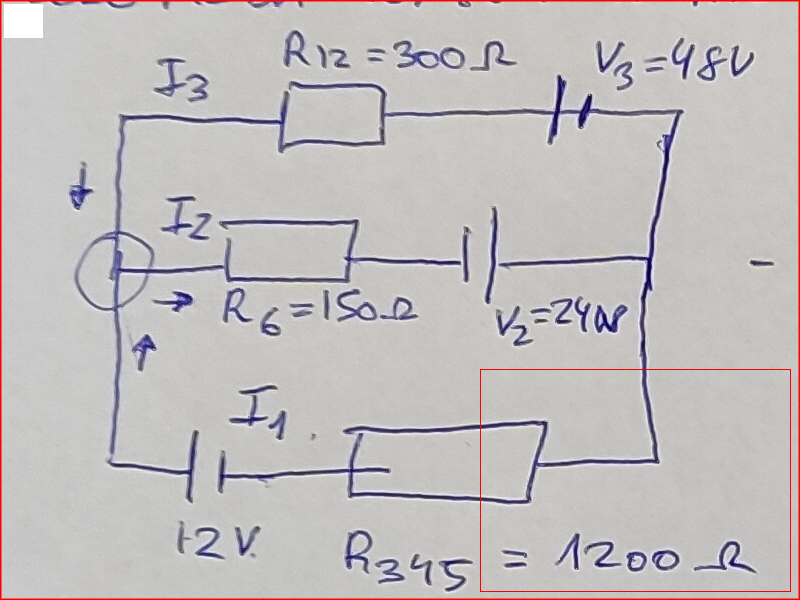 R12=300Ω
V3=48V
I3
I2
R6=150Ω
V2=24V
I1.
12V.
R345 = 1200Ω